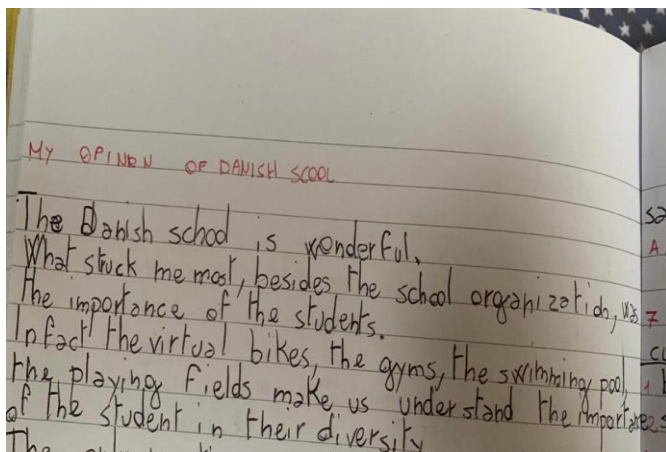 MY OPINEN OF DANISH SCOOL
The Danish school is wonderful.
What struck me most, besides the school organization, was
the importance of the students.
In fact the virtual bikes, the gyms, the swimming pool,
the playing fields make us understand the importance
of the student in their diversity
The
A
7
1